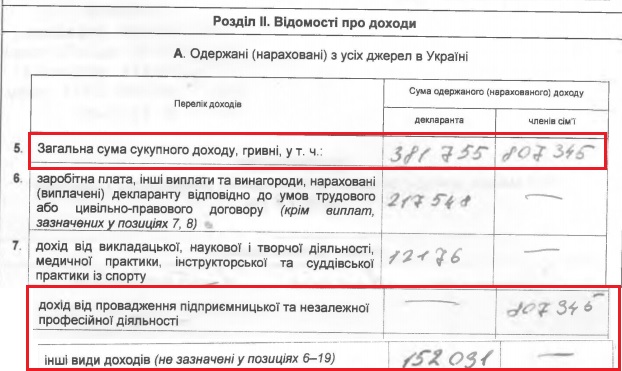 Розділ II. Відомості про доходи
А. Одержані (нараховані) з усіх джерел в Україні
Перелік доходів
Сума одержаного (нарахованого) доходу
декларанта
членів сім’ї
5. Загальна сума сукупного доходу, гривні, у т. ч.: 381 755 807 345
6. заробітна плата, інші виплати та винагороди, нараховані
(виплачені) декларанту відповідно до умов трудового
або цивільно-правового договору (крім виплат,
зазначених у позиціях 7, 8) 217 548 —
7. дохід від викладацької, наукової і творчої діяльності,
медичної практики, інструкторської та суддівської
практики із спорту 12176 —
дохід від провадження підприємницької та незалежної
професійної діяльності — 807 345
інші види доходів (не зазначені у позиціях 6–19) 152 031 —